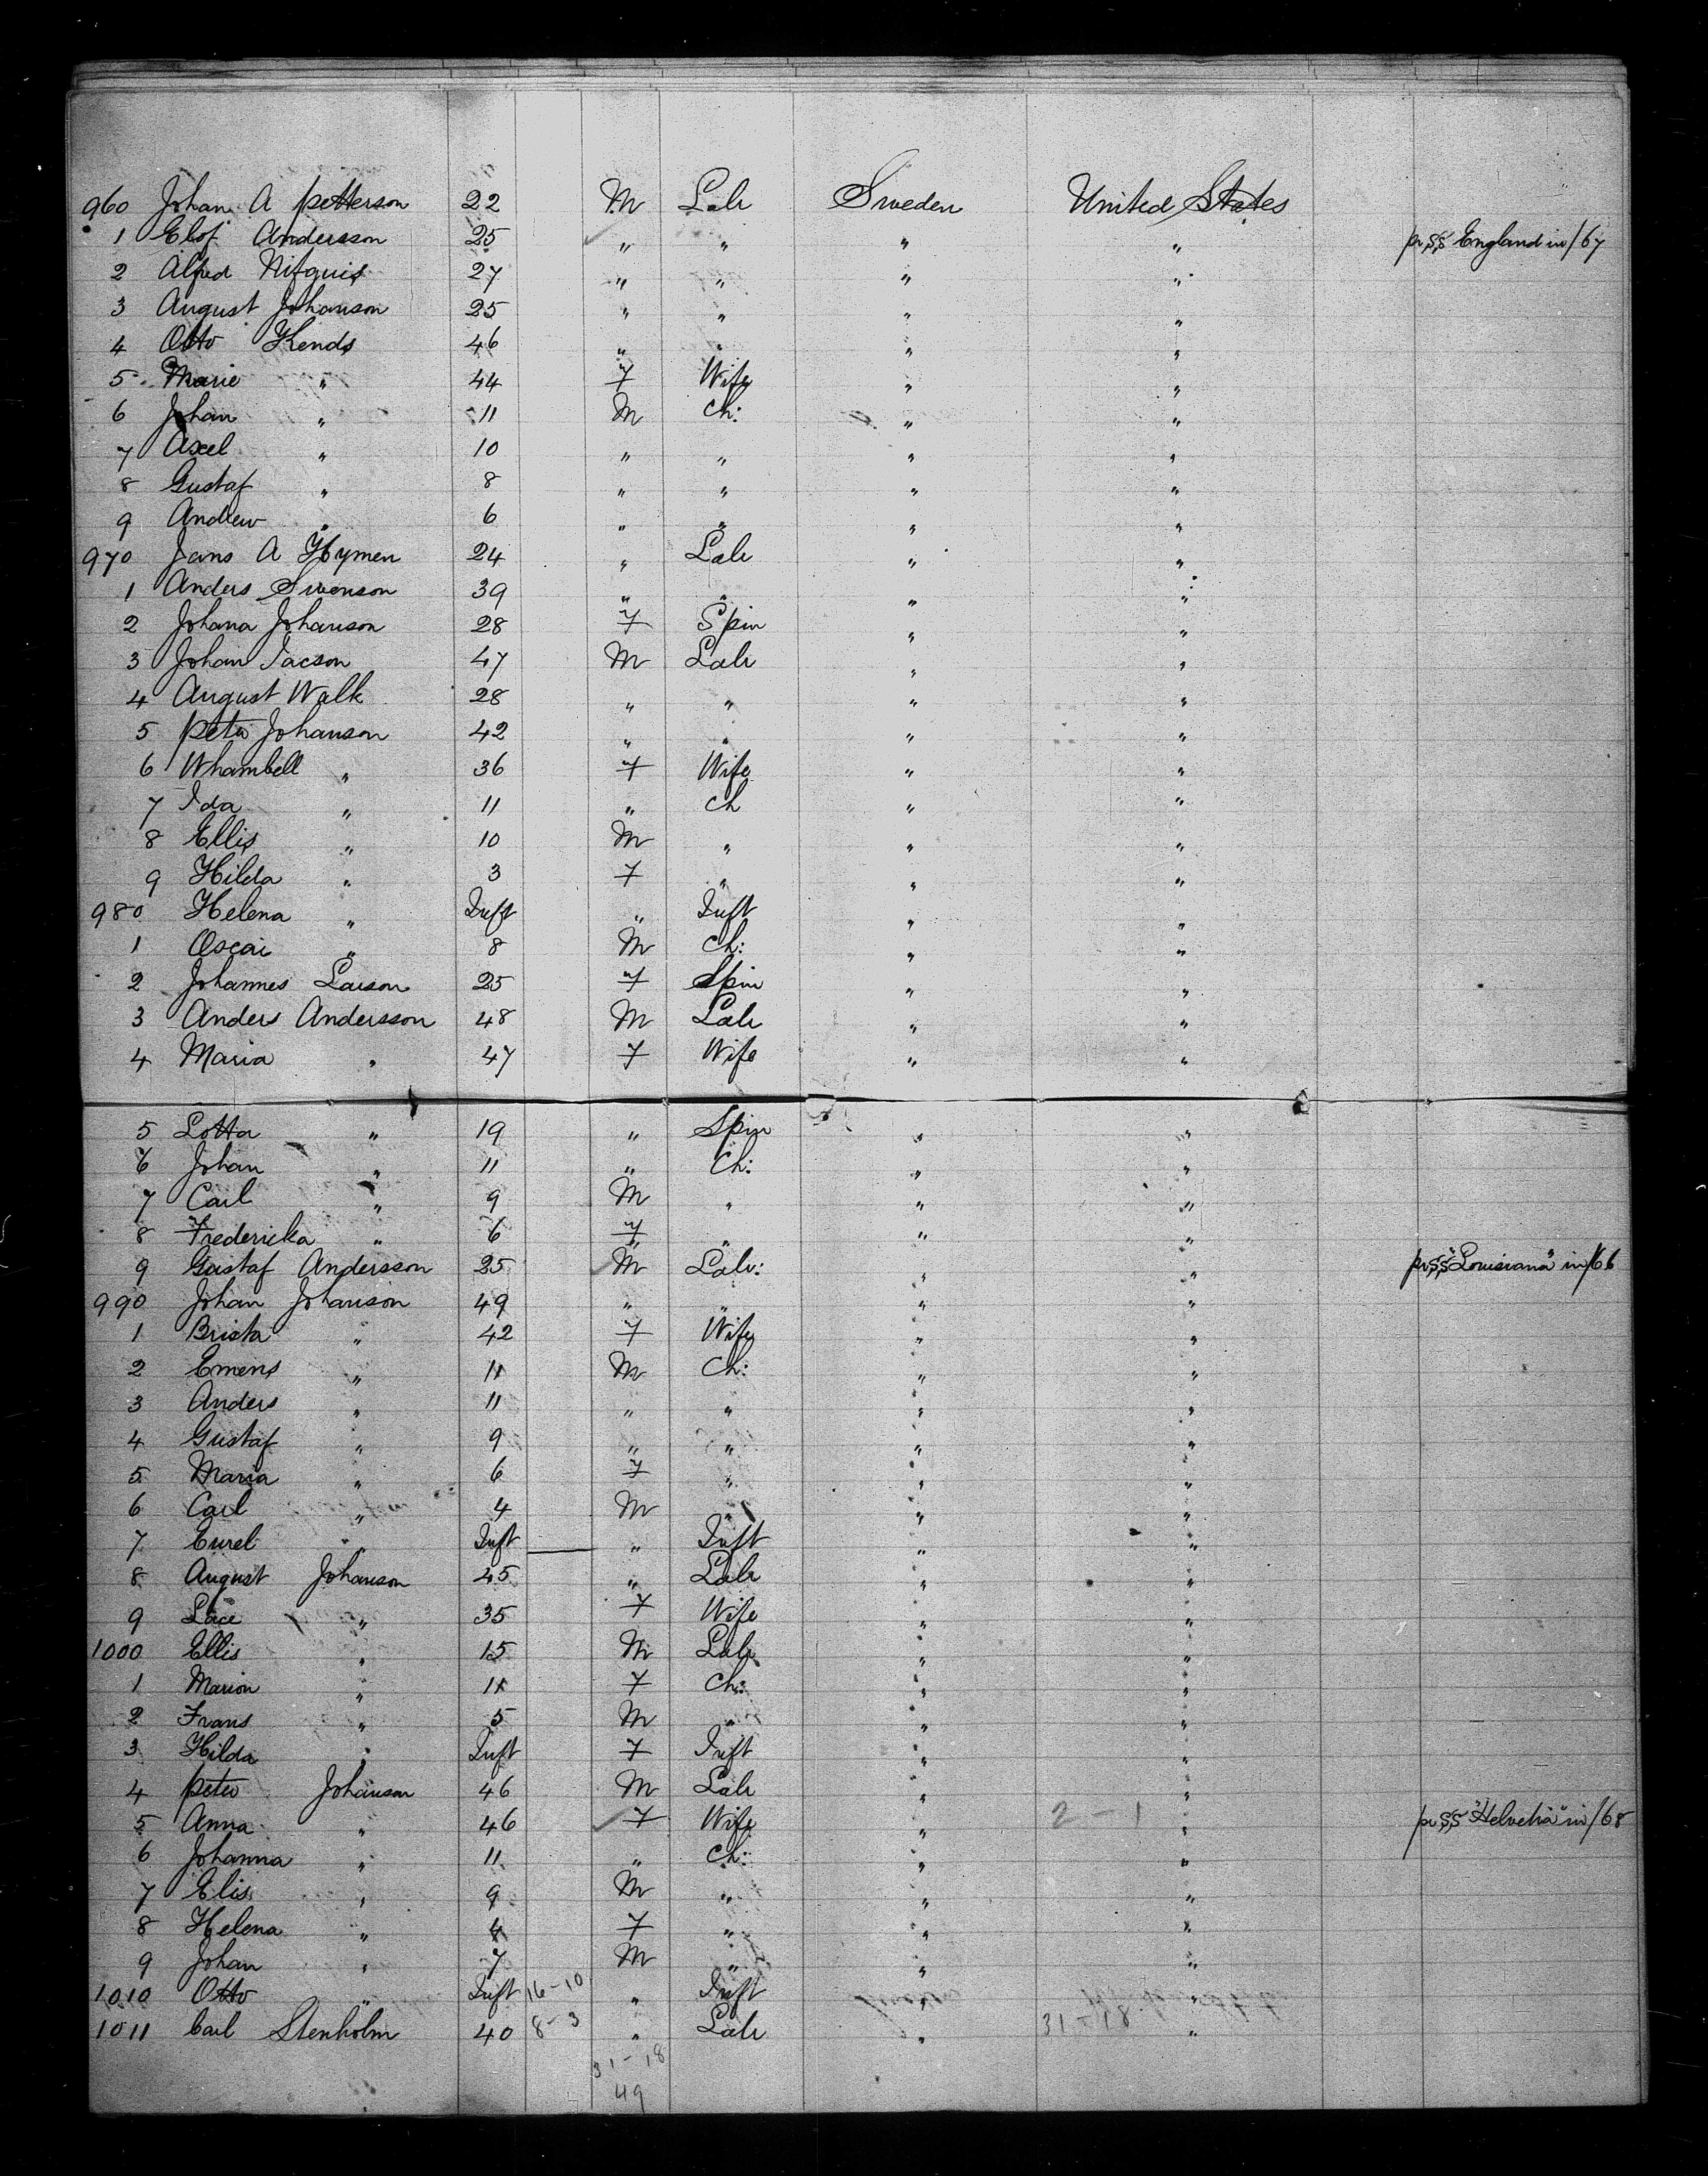 960 Johan A Petterson 22 M Lab Sweden United States
1 Elof Andersson 25 " " " " pr SS England in/67
2 Alfred Nifquist 27 " " " "
3 August Johanson 25 " " " "
4 Otto Kends 46 " " " "
5 Marie " 44 F Wife " "
6 Johan " 11 M Ch: " "
7 Axel " 10 " " " "
8 Gustaf " 8 " " " "
9 Andrew " 6 " " " "
970 Jans A Hymen 24 " Lab " "
1 Anders Swenson 39 " " " "
2 Johana Johanson 28 F Spin " "
3 Johan Jacson 47 M Lab " "
4 August Walk 28 " " " "
5 Peter Johanson 42 " " " "
6 Whambell " 36 F Wife " "
7 Ida " 11 " Ch " "
8 Ellis " 10 M " " "
9 Hilda " 3 F " " "
980 Helena " Inft " Inft " "
1 Oscar " 8 M Ch: " "
2 Johannes Larson 25 F Spin " "
3 Anders Andersson 48 M Lab " "
4 Maria " 47 F Wife " "
5 Lotta " 19 " Spin " "
6 Johan " 11 " Ch: " "
7 Carl " 9 M " " "
8 Fredericka " 6 F " " "
9 Gustaf Andersson 25 M Lab: " " pr SS "Louisiana" in/66
990 Johan Johanson 49 " " " "
1 Brista " 42 F Wife " "
2 Emens " 11 M Ch: " "
3 Anders " 11 " " " "
4 Gustaf " 9 " " " "
5 Maria " 6 F " " "
6 Carl " 4 M " " "
7 " Inft " Inft " "
8 August Johanson 45 " Lab " "
9 " 35 F Wife " "
1000 Ellis " 15 M Lab " "
1 Marion " 11 F Ch: " "
2 Frans " 5 M " " "
3 Hilda " Inft F Inft " "
4 Peter Johanson 46 M Lab " "
5 Anna " 46 F Wife " 2-1 " pr SS "Helvetia" in/68
6 Johanna " 11 " Ch: " "
7 Elis " 9 M " " "
8 Helena " 4 F " " "
9 Johan " 7 M " " "
1010 Otto " Inft 16-10 " Inft " "
1011 Carl Stenholm 40 8-3 " Lab " 31-18 "
31-18
49